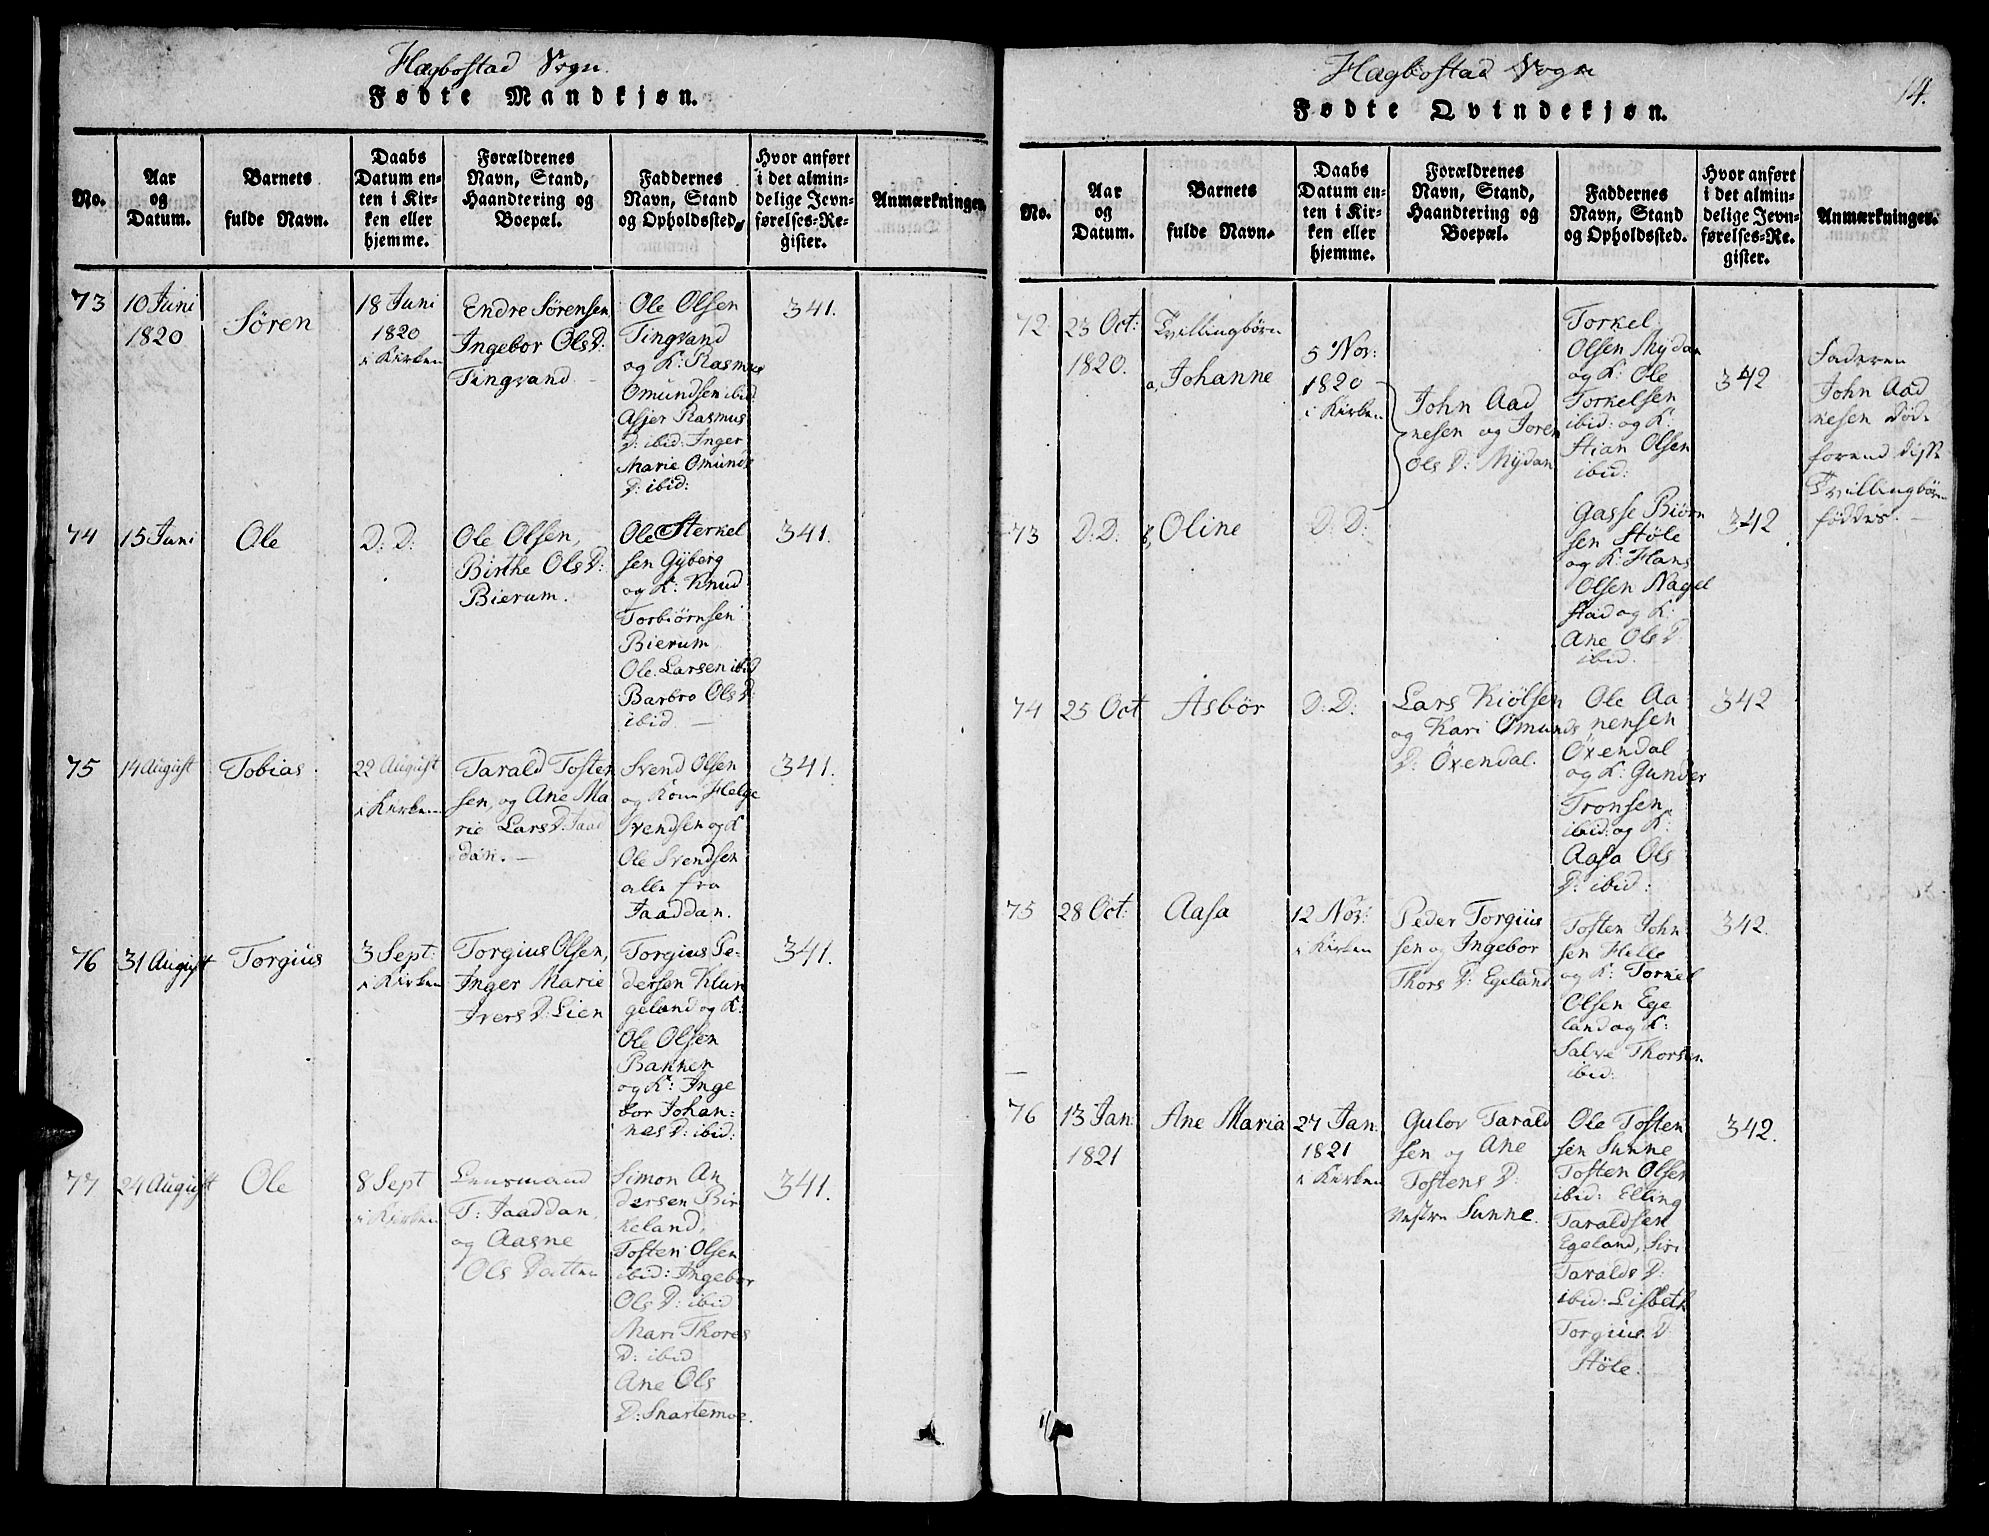 Hægbostad Sogn.
Fødte Mandkjøn.
No.
Aar
og
Datum.
Barnets
fulde Navn.
Daabs
Datum en-
ten i Kir-
ken eller
hjemme.
Forældrenes
Navn, Stand,
Haandtering og
Boepæl.
Faddernes
Navn, Stand
og Opholdssted.
Hvor anført
i det almin-
delige Jevn-
førelses-Re-
gister.
Anmærkninger.
73
10 Juni
1820
Søren
18 Juni
1820
i Kirken
Endre Sørensen
Ingebor Ols D:
Tingvand
Ole Olsen
Tingvand
og K: Rasmus
Omundsen ibid
Asjer Rasmus
D: ibid: Inger
Marie Omunds
D: ibid:
341.
74
15 Juni
Ole
D: D:
Ole Olsen,
Birthe Ols D:
Bierum.
Ole Sterkel
sen Gyberg
og K: Knud
Torbiørnsen
Bierum
Ole Larsen ibid
Barbro Ols D:
ibid. —
341.
75
14 August
Tobias.
22 August
i Kirken
Tarald Tosten
sen, og Ane Ma
rie Lars D: Jaad
dan. —
Svend Olsen
og Kone Helge
Svendsen og K
Ole Svendsen
alle fra
Jaaddan.
341.
76
31 August
Torgius
3 Sept:
i Kirken
Torgius Olsen,
Inger Marie
Ivers D: Lien
Torgius Pe-
dersen Klun
geland og K:
Ole Olsen
Bakken
og K: Inge
bor Johan:
nes D: ibid:
341.
77
24 August
Ole
8 Sept
i Kirken
Lensmand
T: Jaaddan,
og Aasne
Ols Datter
Simon An
dersen Bir
keland,
Tosten Olsen
ibid: Ingebor
Ols D: ibid
Mari Thores
D: ibid
Ane Ols
D: Snartemoe.
341.
Hægbostad Sogn
14.
Fødte Qvindekjøn.
No.
Aar
og
Datum.
Barnets
fulde Navn.
Daabs
Datum en-
ten i Kir-
ken eller
hjemme.
Forældrenes
Navn, Stand,
Haandtering og
Boepæl.
Faddernes
Navn, Stand
og Opholdssted.
Hvor anført
i det almin-
delige Jevn-
førelses-Re-
gister.
Anmærkninger.
72
23 Oct:
1820.
Tvillingbørn
a, Johanne
5 Nov:
1820
i Kirken
John Aad
nesen og Joren
Ols D: Mydan
Torkel
Olsen Mydan
og K: Ole
Torkelsen
ibid: og K.
Stian Olsen
ibid:
342
Faderen
John Aad
nesen døde
forend disse
Tvillingbørn
føddes. —
73
D: D:
b, Oline
D: D:
Gasse Biørn
sen Støle
og K: Hans
Olsen Nagel
stad og K:
Ane Ols D
ibid.
342
74
25 Oct
Asbør
D: D:
Lars Kiølsen
og Kari Omunds
D: Öxendal.
Ole Aa
nensen
Öxendal
og K: Gunder
Tronsen
ibid: og K:
Aasa Ols
D: ibid:
342
75
28 Oct:
Aasa
12 Nov:
i Kirken
Peder Torgius
sen og Ingebor
Thors D: Egeland
Tosten John
sen Helle
og K: Torkel
Olsen Ege
land og K:
Salve Thorsen
ibid:
342.
76
13 Jan:
1821
Ane Maria
27 Jan:
1821
i Kirken
Gulov Tarald
sen og Ane
Tostens D:
Vestre Sunne.
Ole Tosten
sen Sunne
Tosten Olsen
ibid: Elling
Taraldsen
Egeland, Siri
Taralds D:
ibid: Lisbeth
Torgius D
Støle.
342.